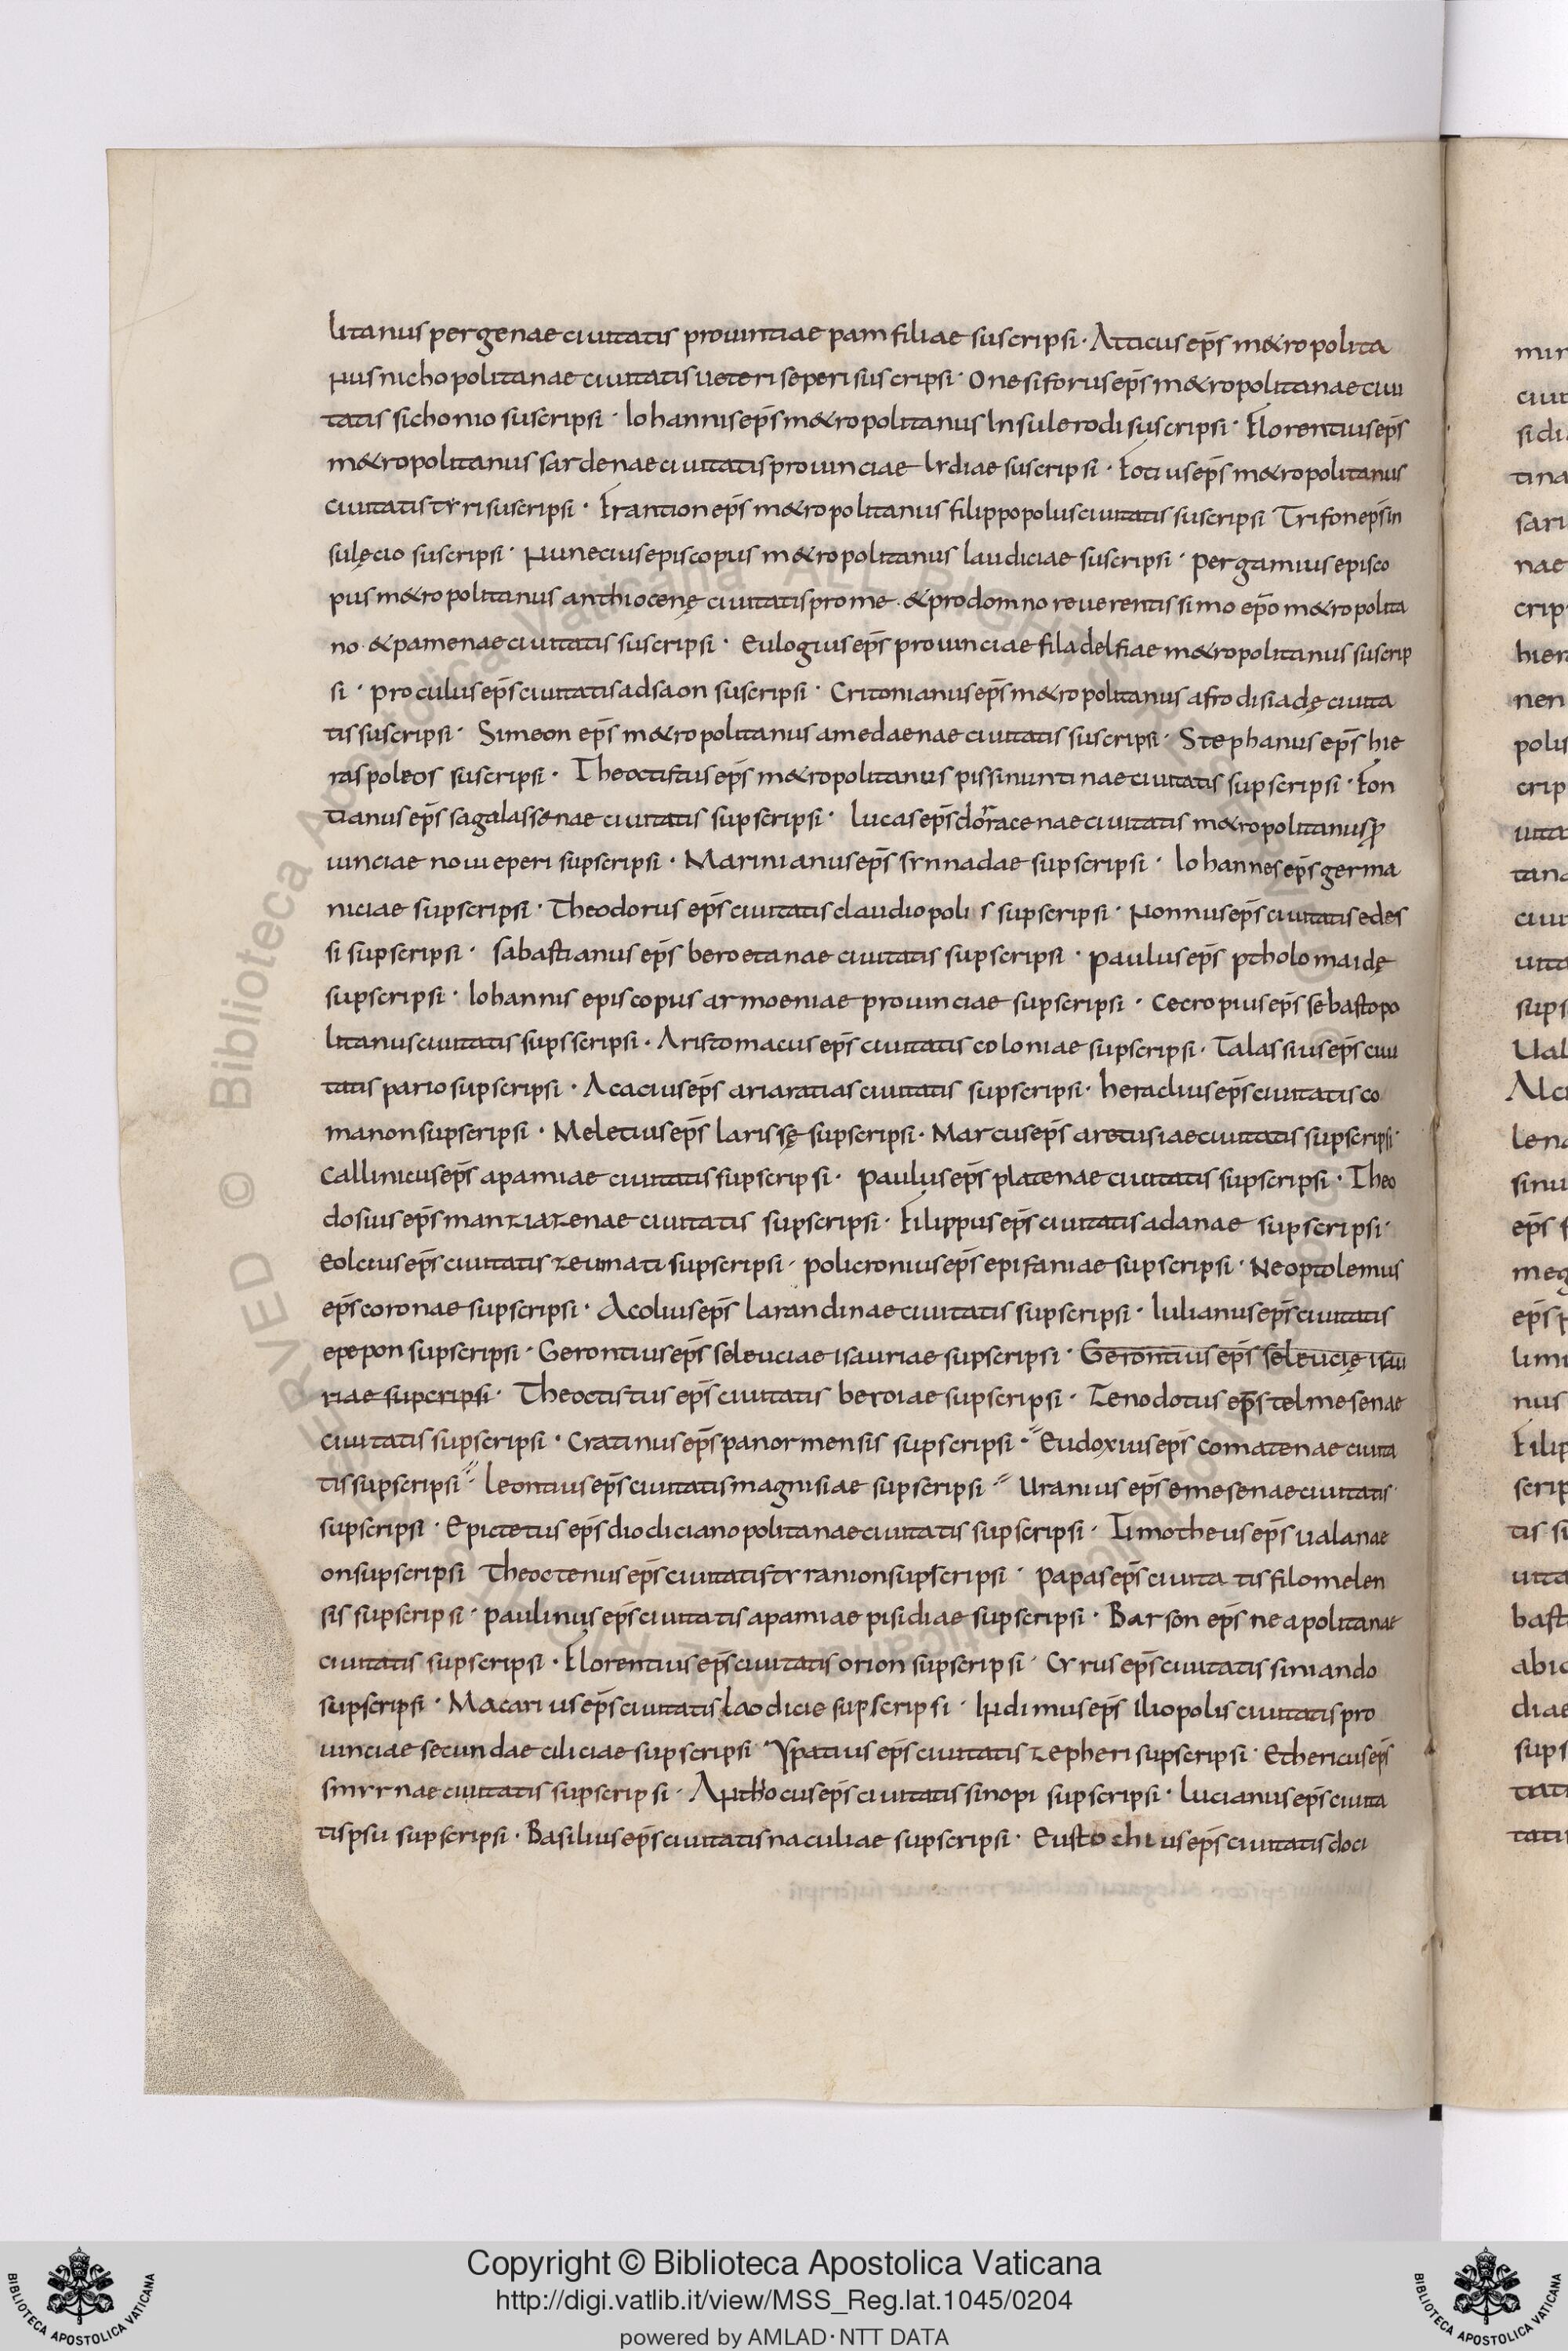 litanus pergenae ciuitatis prouintiae pamfiliae suscripsi · Atticus ep̄s m&ropolita
nus nichopolitanae ciuitatis ueteri seperi suscripsi · Onesiforus ep̄s m&ropolitanae ciui
tatis sichonio suscripsi · Iohannis ep̄s m&ropolitanus Insule rodi suscripsi · Florentius ep̄s
m&ropolitanus sardenae ciuitatis prouinciae lrdiae suscripsi · Foti us ep̄s m&ropolitanus
ciuitatis tr ri suscripsi · Frantion ep̄s m&ropolitanus filippopolus ciuitatis suscripsi Trifon ep̄s in
sulęcio suscripsi · Nunecius episcopus m&ropolitanus laudiciae suscripsi · pergamius episco
pus m&ropolitanus anthiocenę ciuitatis pro me · & pro domno reuerentissimo ep̄o m&ropolita
no · & pamenae ciuitatis suscripsi · Eulogius ep̄s prouinciae filadelfiae m&ropolitanus suscrip
si · proculus ep̄s ciuitatis adsaon suscripsi · Critonianus ep̄s m&ropolitanus afrodisiadę ciuita
tis suscripsi · Simeon ep̄s m&ropolitanus amedaenae ciuitatis suscripsi · Stephanus ep̄s hie
raspoleos suscripsi · Theoctistus ep̄s m&ropolitanus pissinuntinae ciuitatis supscripsi · Fon
tianus ep̄s sagalassenae ciuitatis supscripsi · lucas ep̄s dorracenae ciuitatis m&ropolitanus ꝓ
uinciae noui eperi supscripsi · Marinianus ep̄s srnnadae supscripsi · Iohannes ep̄s germa
niciae supscripsi · Theodorus ep̄s ciuitatis claudiopoli s supscripsi · Nonnus ep̄s ciuitatis edes
si supscripsi · sabastianus ep̄s beroetanae ciuitatis supscripsi · paulus ep̄s ptholomaidę
supscripsi · Iohannis episcopus armoeniae prouinciae supscripsi · Cecropius ep̄s sebastopo
litanus ciuitatis supsscripsi · Aristomacus ep̄s ciuitatis coloniae supscripsi · Talassius ep̄s ciui
tatis pario supscripsi · Acacius ep̄s ariaratias ciuitatis supscripsi · heraclius ep̄s ciuitatis co
manon supscripsi · Meletius ep̄s larissę supscripsi · Marcus ep̄s aretusiae ciuitatis supscripsi ·
Callinicus ep̄s apamiae ciuitatis supscripsi · paulus ep̄s platenae ciuitatis supscripsi · Theo
dosius ep̄s manziazenae ciuitatis supscripsi · Filippus ep̄s ciuitatis adanae supscripsi ·
Eolcius ep̄s ciuitatis zeumati supscripsi · policronius ep̄s epifaniae supscripsi · Neoptolemus
ep̄s coronae supscripsi · Acolius ep̄s larandinae ciuitatis supscripsi · Iulianus ep̄s ciuitatis
epepon supscripsi · Gerontius ep̄s seleuciae isauriae supscripsi · Gerontius ep̄s seleucię isau
riae supcripsi · Theoctistus ep̄s ciuitatis beroiae supscripsi · Zenodotus ep̄s telmesenae
ciuitatis supscripsi · Cratinus ep̄s panormensis supscripsi · Eudoxius ep̄s comatenae ciuita
tis supscripsi · leontius ep̄s ciuitatis magnisiae supscripsi · Uranius ep̄s emesenae ciuitatis
supscripsi · Epictetus ep̄s diodicianopolitanae ciuitatis supscripsi · Timotheus ep̄s ualanae
on supscripsi Theoctenus ep̄s ciuitatis tr ranion supscripsi · papas ep̄s ciuita tis filomelen
sis supscripsi · paulinus ep̄s ciuitatis apamiae pisidiae supscripsi · Barson ep̄s neapolitanae
ciuitatis supscripsi · Florentius ep̄s ciuitatis orion supscripsi · Cr rus ep̄s ciuitatis siniando
supscripsi · Macari us ep̄s ciuitatis laodicie supscripsi · Indimus ep̄s Iliopolis ciuitatis pro
uinciae secundae ciliciae supscripsi · Yspatius ep̄s ciuitatis zepheri supscripsi · Ethericus ep̄s
smrrnae ciuitatis supscripsi · Anthiocus ep̄s ciuitatis sinopi supscripsi · lucianus ep̄s ciuita
tis psii supscripsi · Basilius ep̄s ciuitatis naculiae supscripsi · Eustochius ep̄s ciuitatis doci
Copyright © Biblioteca Apostolica Vaticana
http://digi.vatlib.it/view/MSS_Reg.lat.1045/0204
powered by AMLAD · NTT DATA